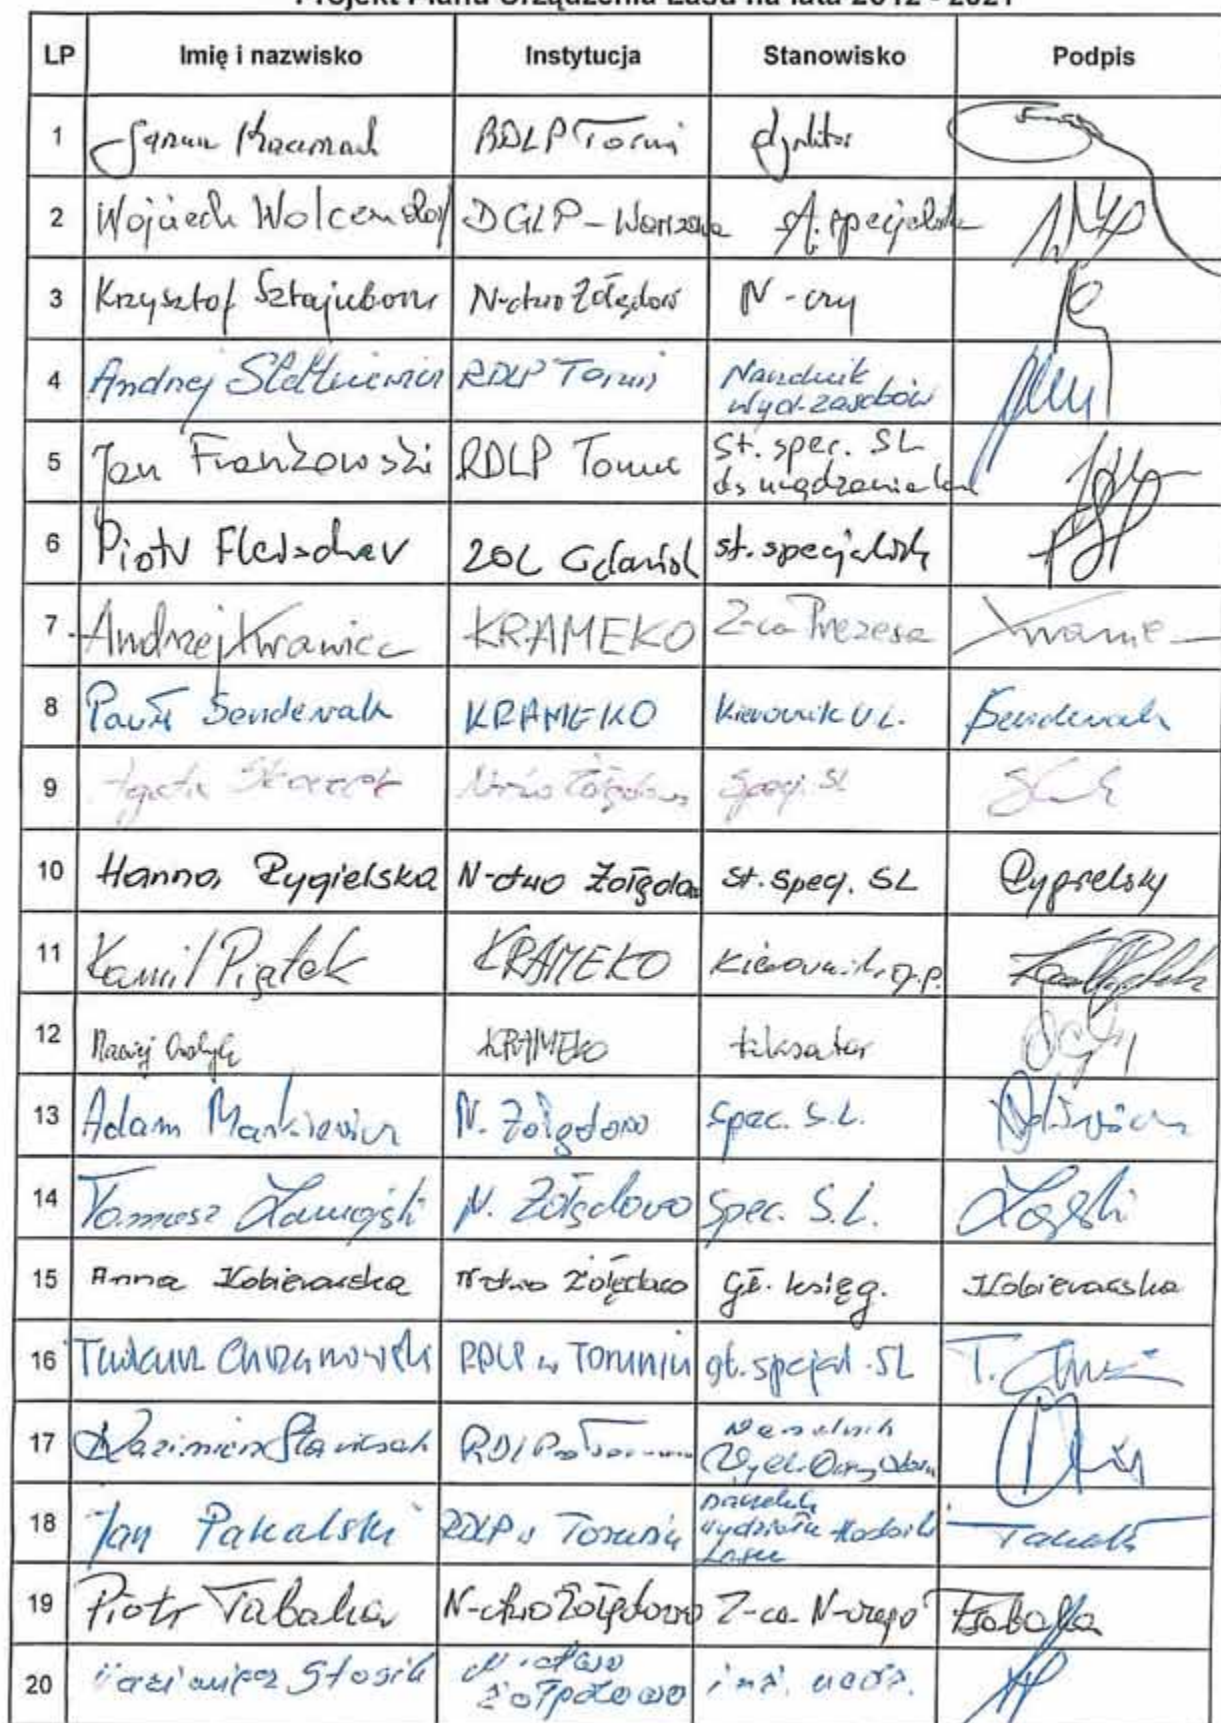 Projekt Planu Urządzenia Lasu na lata 2012 - 2021
LP Imię i nazwisko Instytucja Stanowisko Podpis
1 Janusz Kaczmarek RDLP Toruń dyrektor
2 Wojciech DGLP - Warszawa st. specjalista
3 Krzysztof N-ctwo Żołędowo N-czy
4 Andrzej RDLP Toruń Naczelnik
Wydz. zasobów
5 Jan Frankowski RDLP Toruń St. spec. SL
ds urządzania lasu
6 Piotr Fleischer ZOL Gdańsk st. specjalista
7 Andrzej Krawiec KRAMEKO Z-ca Prezesa
8 Paweł Senderak KRAMEKO Kierownik U L. Senderak
9 Agata N-ctwo Żołędowo Spec. SL
10 Hanna Rygielska N-ctwo Żołędowo st. specj. SL Rygielska
11 Kamil Piątek KRAMEKO Kierownik
12 Maciej KRAMEKO taksator
13 Adam Markiewicz N. Żołędowo Spec. S.L.
14 Tomasz N. Żołędowo Spec. S.L.
15 Anna Kobierowska N-ctwo Żołędowo Gł. księg. Kobierowska
16 Tadeusz Chrzanowski RDLP w Toruniu gł. specjal. SL
17 Kazimierz Stańczak RDLP w Toruniu Naczelnik
Wydz. Ochrony
18 Jan Pakalski RDLP w Toruniu naczelnik
wydziału Hodowli
Lasu
19 Piotr Tabaka N-ctwo Żołędowo Z-ca N-czego Tabaka
20 Kazimierz Stosik N-ctwo
Żołędowo inż. nadz.